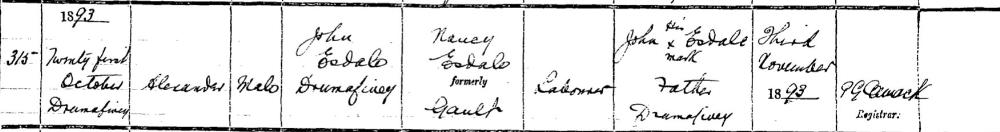 1893
315 Twenty first October Drumafivey
Alexander
Male
John Esdale Drumafivey
Nancy Esdale formerly Gault
Labourer
John his x mark Esdale Father Drumafivey
Third November 1893
Registrar.